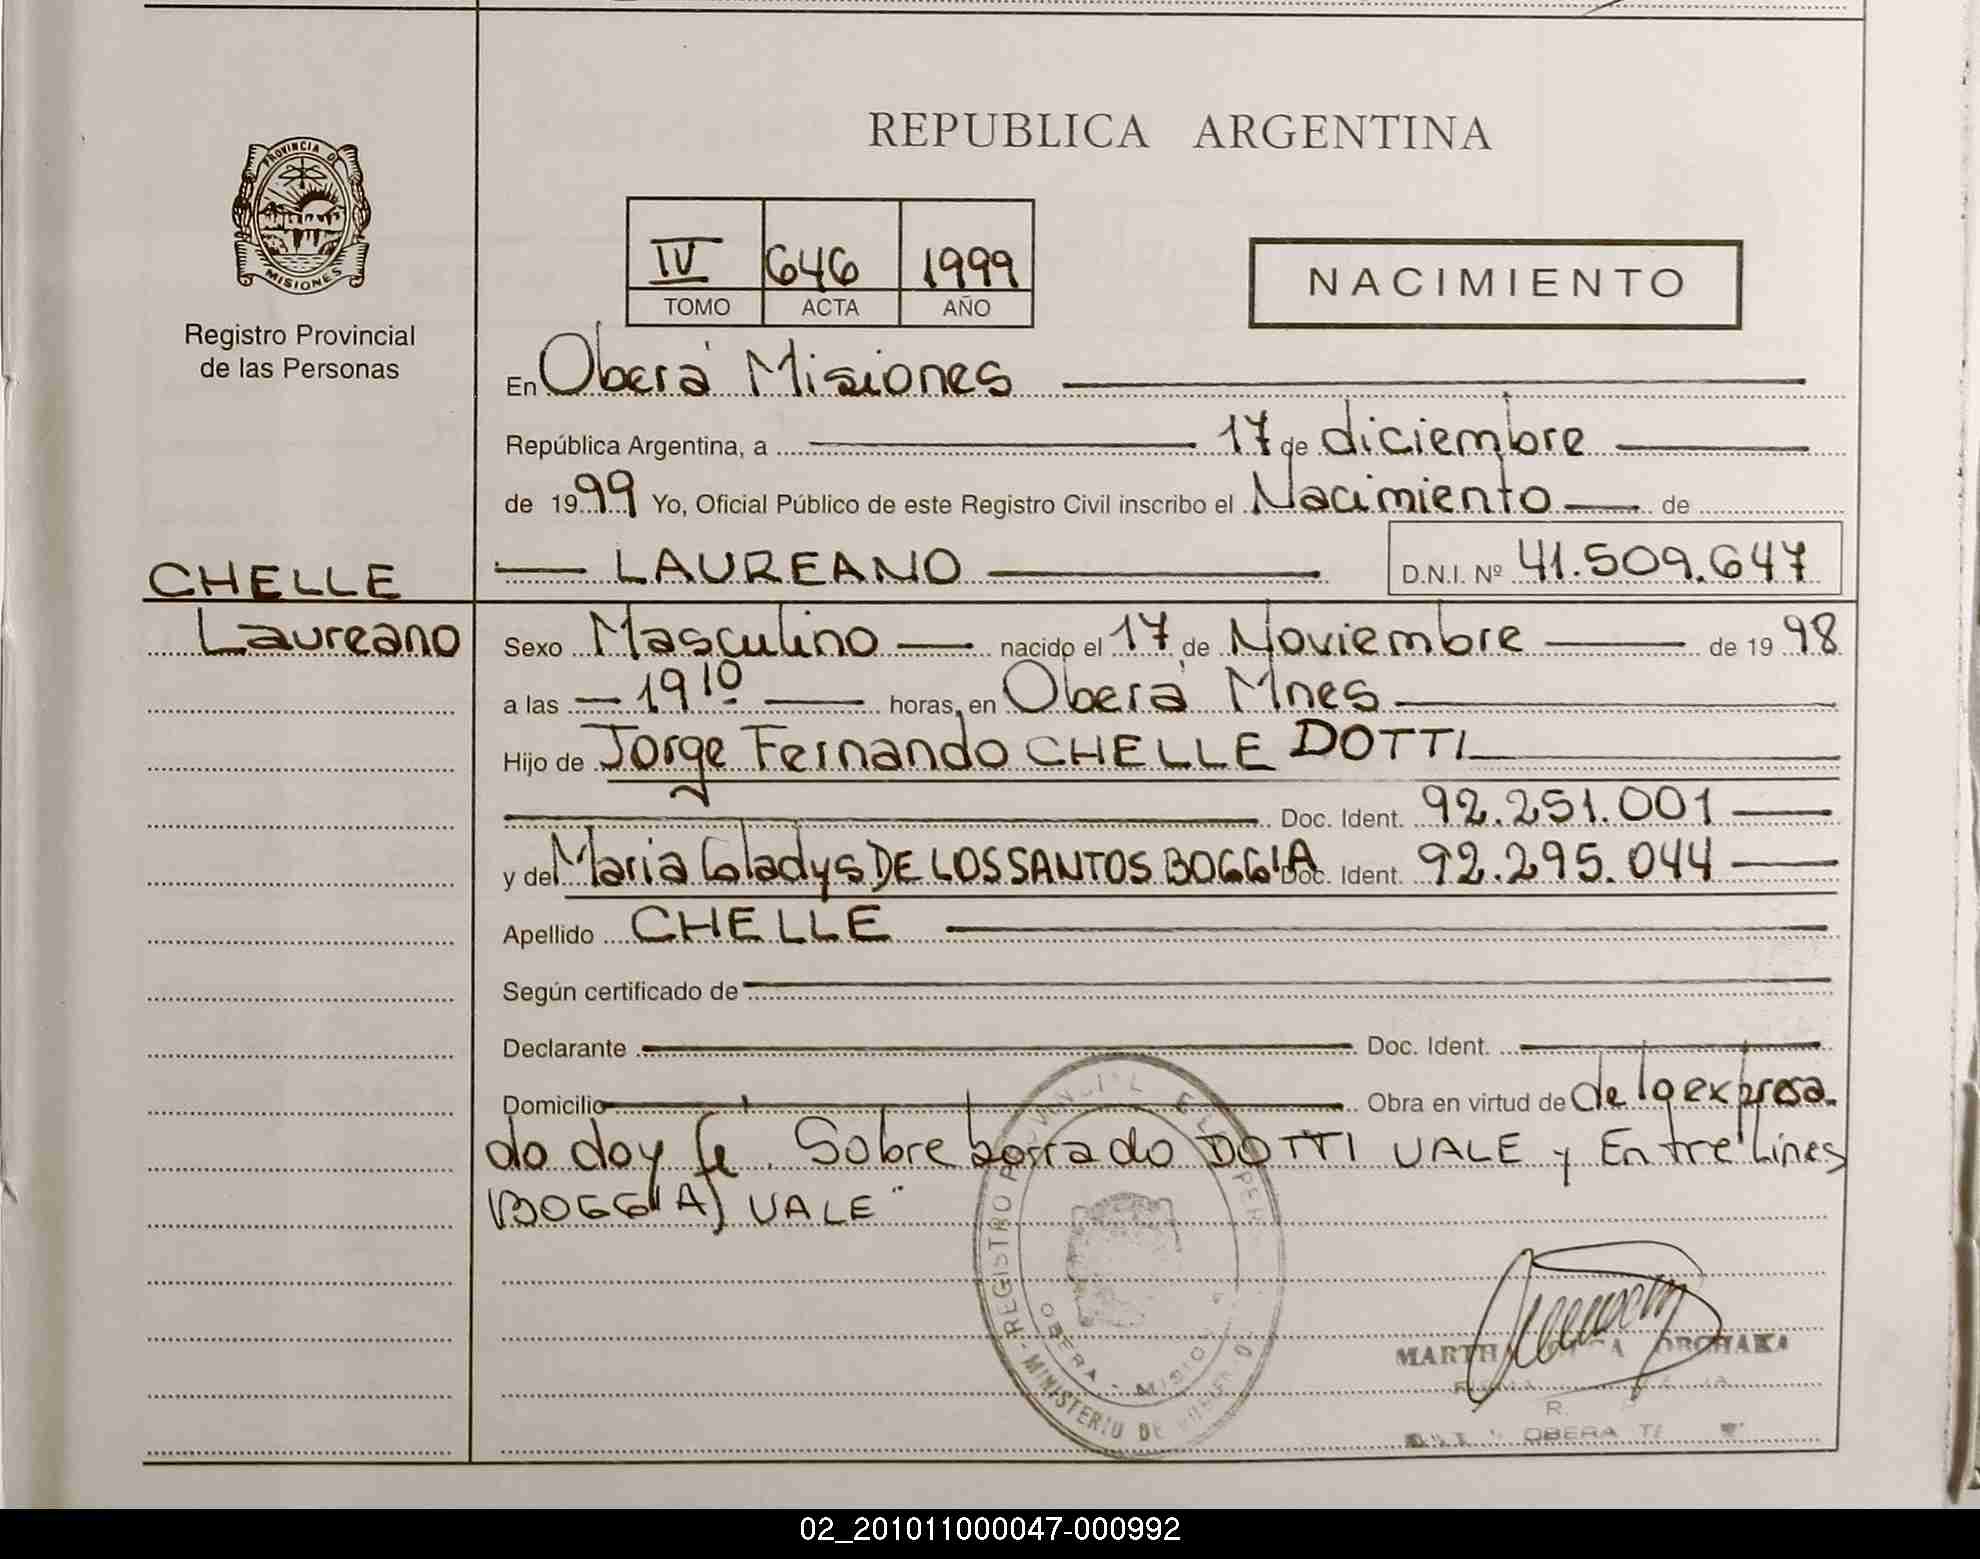 REPUBLICA ARGENTINA
PROVINCIA DE
MISIONES
Registro Provincial
de las Personas
IV 646 1999
TOMO ACTA AÑO
NACIMIENTO
En Oberá Misiones
República Argentina, a 17 de diciembre
de 1999 Yo, Oficial Público de este Registro Civil inscribo el Nacimiento de
CHELLE LAUREANO D.N.I. Nº 41.509.647
Laureano Sexo Masculino nacido el 17 de Noviembre de 1998
a las 19 10 horas, en Oberá Mnes
Hijo de Jorge Fernando CHELLE DOTTI
Doc. Ident. 92.251.001
y de Maria Gladys DE LOS SANTOS BOGGIA Doc. Ident. 92.295.044
Apellido CHELLE
Según certificado de
Declarante Doc. Ident.
Domicilio Obra en virtud de de lo expresa-
do doy fe. Sobre borrado DOTTI VALE y Entre lines
BOGGIA) VALE"
REGISTRO PROVINCIAL
OBERA - MISIONES
MINISTERIO DE
MARTHA
R.
OBERA
02_201011000047-000992